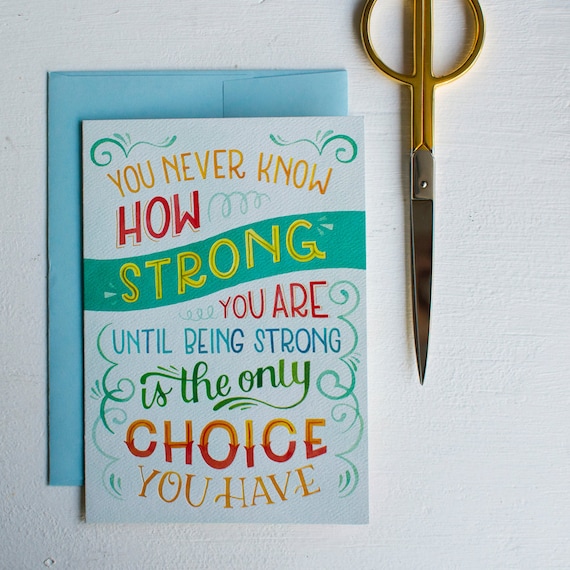 YOU NEVER KNOW
HOW
STRONG
YOU ARE
UNTIL BEING STRONG
is the only
CHOICE
YOU HAVE